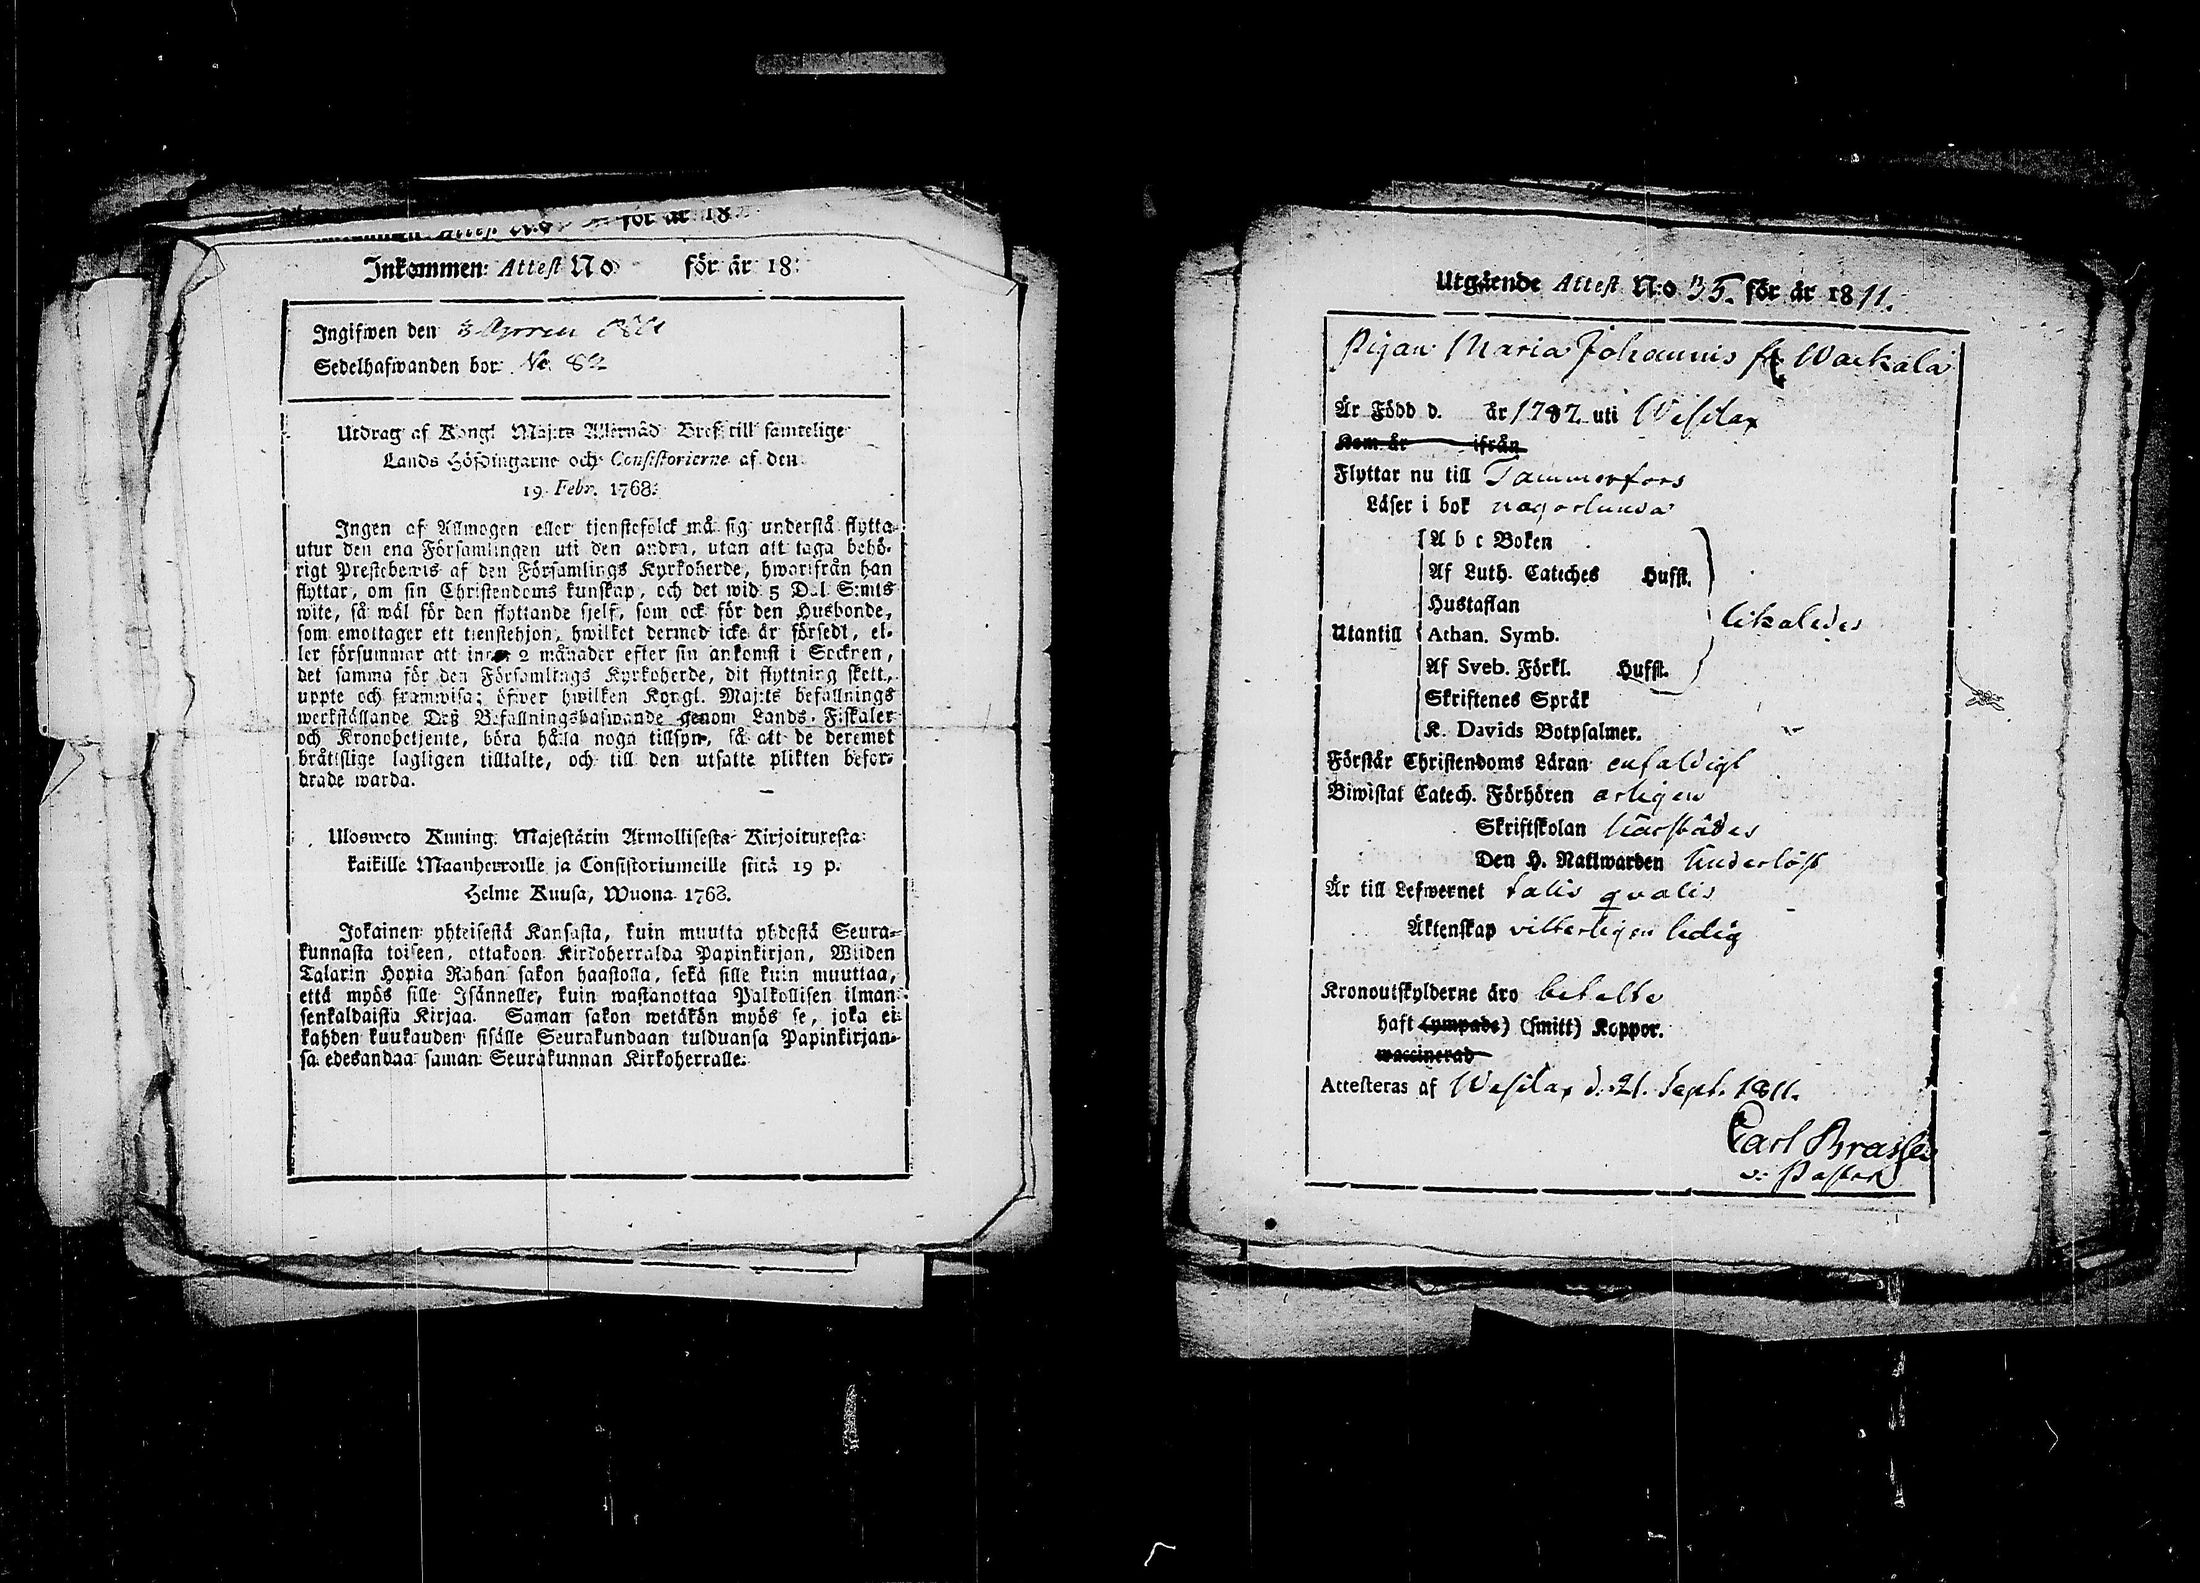 för år 18
Inkommen: Attest No för år 18
Ingifwen den 3
Sedelhafwanden bor No 82
Utdrag af Kongl Maj:ts Allernåd Bref till samtelige
Lands Höfdingarne och Consistorierne af den
19 Febr. 1768:
Ingen af Allmogen eller tienstefolck må sig understå flytta
utur den ena Församlingen uti den andra, utan att taga behö-
rigt Prestebewis af den Församlings Kyrkoherde, hwarifrån han
flyttar, om sin Christendoms kunskap, och det wid 5 Dal S:mts
wite, så wäl för den flyttande sjelf, som ock för den Husbonde,
som emottager ett tienstehjon, hwilket dermed icke är försedt, el-
ler försummar att innan 2 månader efter sin ankomst i Socknen,
det samma för den Församlings Kyrkoherde, dit flyttning skett,
uppte och framwisa; öfwer hwilken Kongl. Maj:ts befallnings
werkställande Deß Befallningshafwande genom Lands-Fiskaler
och Kronobetjente, böra hålla noga tillsyn, så att de deremot
bråttslige lagligen tilltalte, och till den utsatte plikten befor-
drade warda.
Ulosweto Kuning. Majestätin Armollisesta Kirjoituxesta
kaikille Maanherroille ja Consistoriumeille siitä 19 p.
Helme Kuusa, Wuona 1768.
Jokainen yhteisestä Kansasta, kuin muutta yhdestä Seura-
kunnasta toiseen, ottakoon Kirkoherralda Papinkirjan, Wiiden
Talarin Hopia Rahan sakon haastolla, sekä sille kuin muuttaa,
että myös sille Isännelle, kuin wastanottaa Palkollisen ilman
senkaldaista Kirjaa. Saman sakon wetäkön myös se, joka ei
kahden kuukauden sisälle Seurakundaan tulduansa Papinkirjan-
sa edesandaa saman Seurakunnan Kirkoherralle.
Utgående Attest N:o 35. för år 1811.
Pigan Maria Johannis fr Warkala
Är Född d. år 1787 uti Wesilax
Kom år ifrån
Flyttar nu till Tammerfors
Läser i bok någorlunda
A b c Boken
Af Luth. Cateches Hufst.
Hustaflan
Utantill Athan. Symb. likaledes
Af Sveb. Förkl. Hufst.
Skriftenes Språk
K. Davids Botpsalmer.
Förstår Christendoms Läran enfaldigt
Biwistat Catech. Förhören årligen
Skriftskolan
Den H. Nattwarden
Är till Lefwernet talis qualis
Äktenskap witterligen ledig
Kronoutskylderne äro betalte
haft (ympade) (smitt) Koppor.
waccinerad
Attesteras af Wesilax d. 21. Sept. 1811.
Carl
v: Pastor